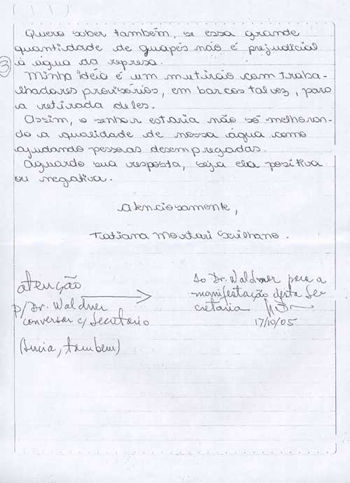 Quero saber também, se essa grande
quantidade de guapés não é prejudicial
à água da represa.
3
Minha idéia é um mutirão com traba-
lhadores provisórios, em barcos talvez, para
a retirada deles.
Assim, o senhor estaria não só melhoran-
do a qualidade de nossa água como
ajudando pessoas desempregadas.
Aguardo sua resposta, seja ela positiva
ou negativa.
Atenciosamente,
Tatiana
atenção
p/ Dr. Waldner
conversar c/ Secretário
(Lucia, também)
Ao Dr. Waldner para a
manifestação desta Se-
cretaria
17/10/05